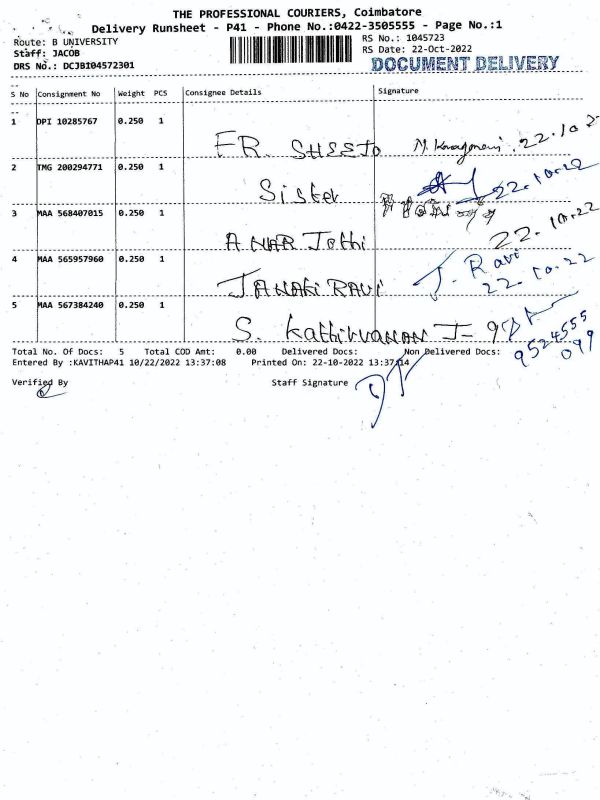 THE PROFESSIONAL COURIERS, Coimbatore
Delivery Runsheet - P41 - Phone No.:0422-3505555 - Page No.:1
Route: B UNIVERSITY
RS No.: 1045723
Staff: JACOB
RS Date: 22-Oct-2022
DRS No.: DCJB104572301
DOCUMENT DELIVERY
S No Consignment No Weight PCS Consignee Details Signature
1 DPI 10285767 0.250 1
FR. SHEEJO 22.10.2
2 TMG 200294771 0.250 1
Sister 22.10.22
3 MAA 568407015 0.250 1
Jothi 22.10.22
4 MAA 565957960 0.250 1
JANAKI RAVI J. Ravi
22.10.22
5 MAA 567384240 0.250 1
S. Kathirvanan J-9
9524555
099
Total No. Of Docs: 5 Total COD Amt: 0.00 Delivered Docs: Non Delivered Docs:
Entered By :KAVITHAP41 10/22/2022 13:37:08 Printed On: 22-10-2022 13:37:14
Verified By Staff Signature